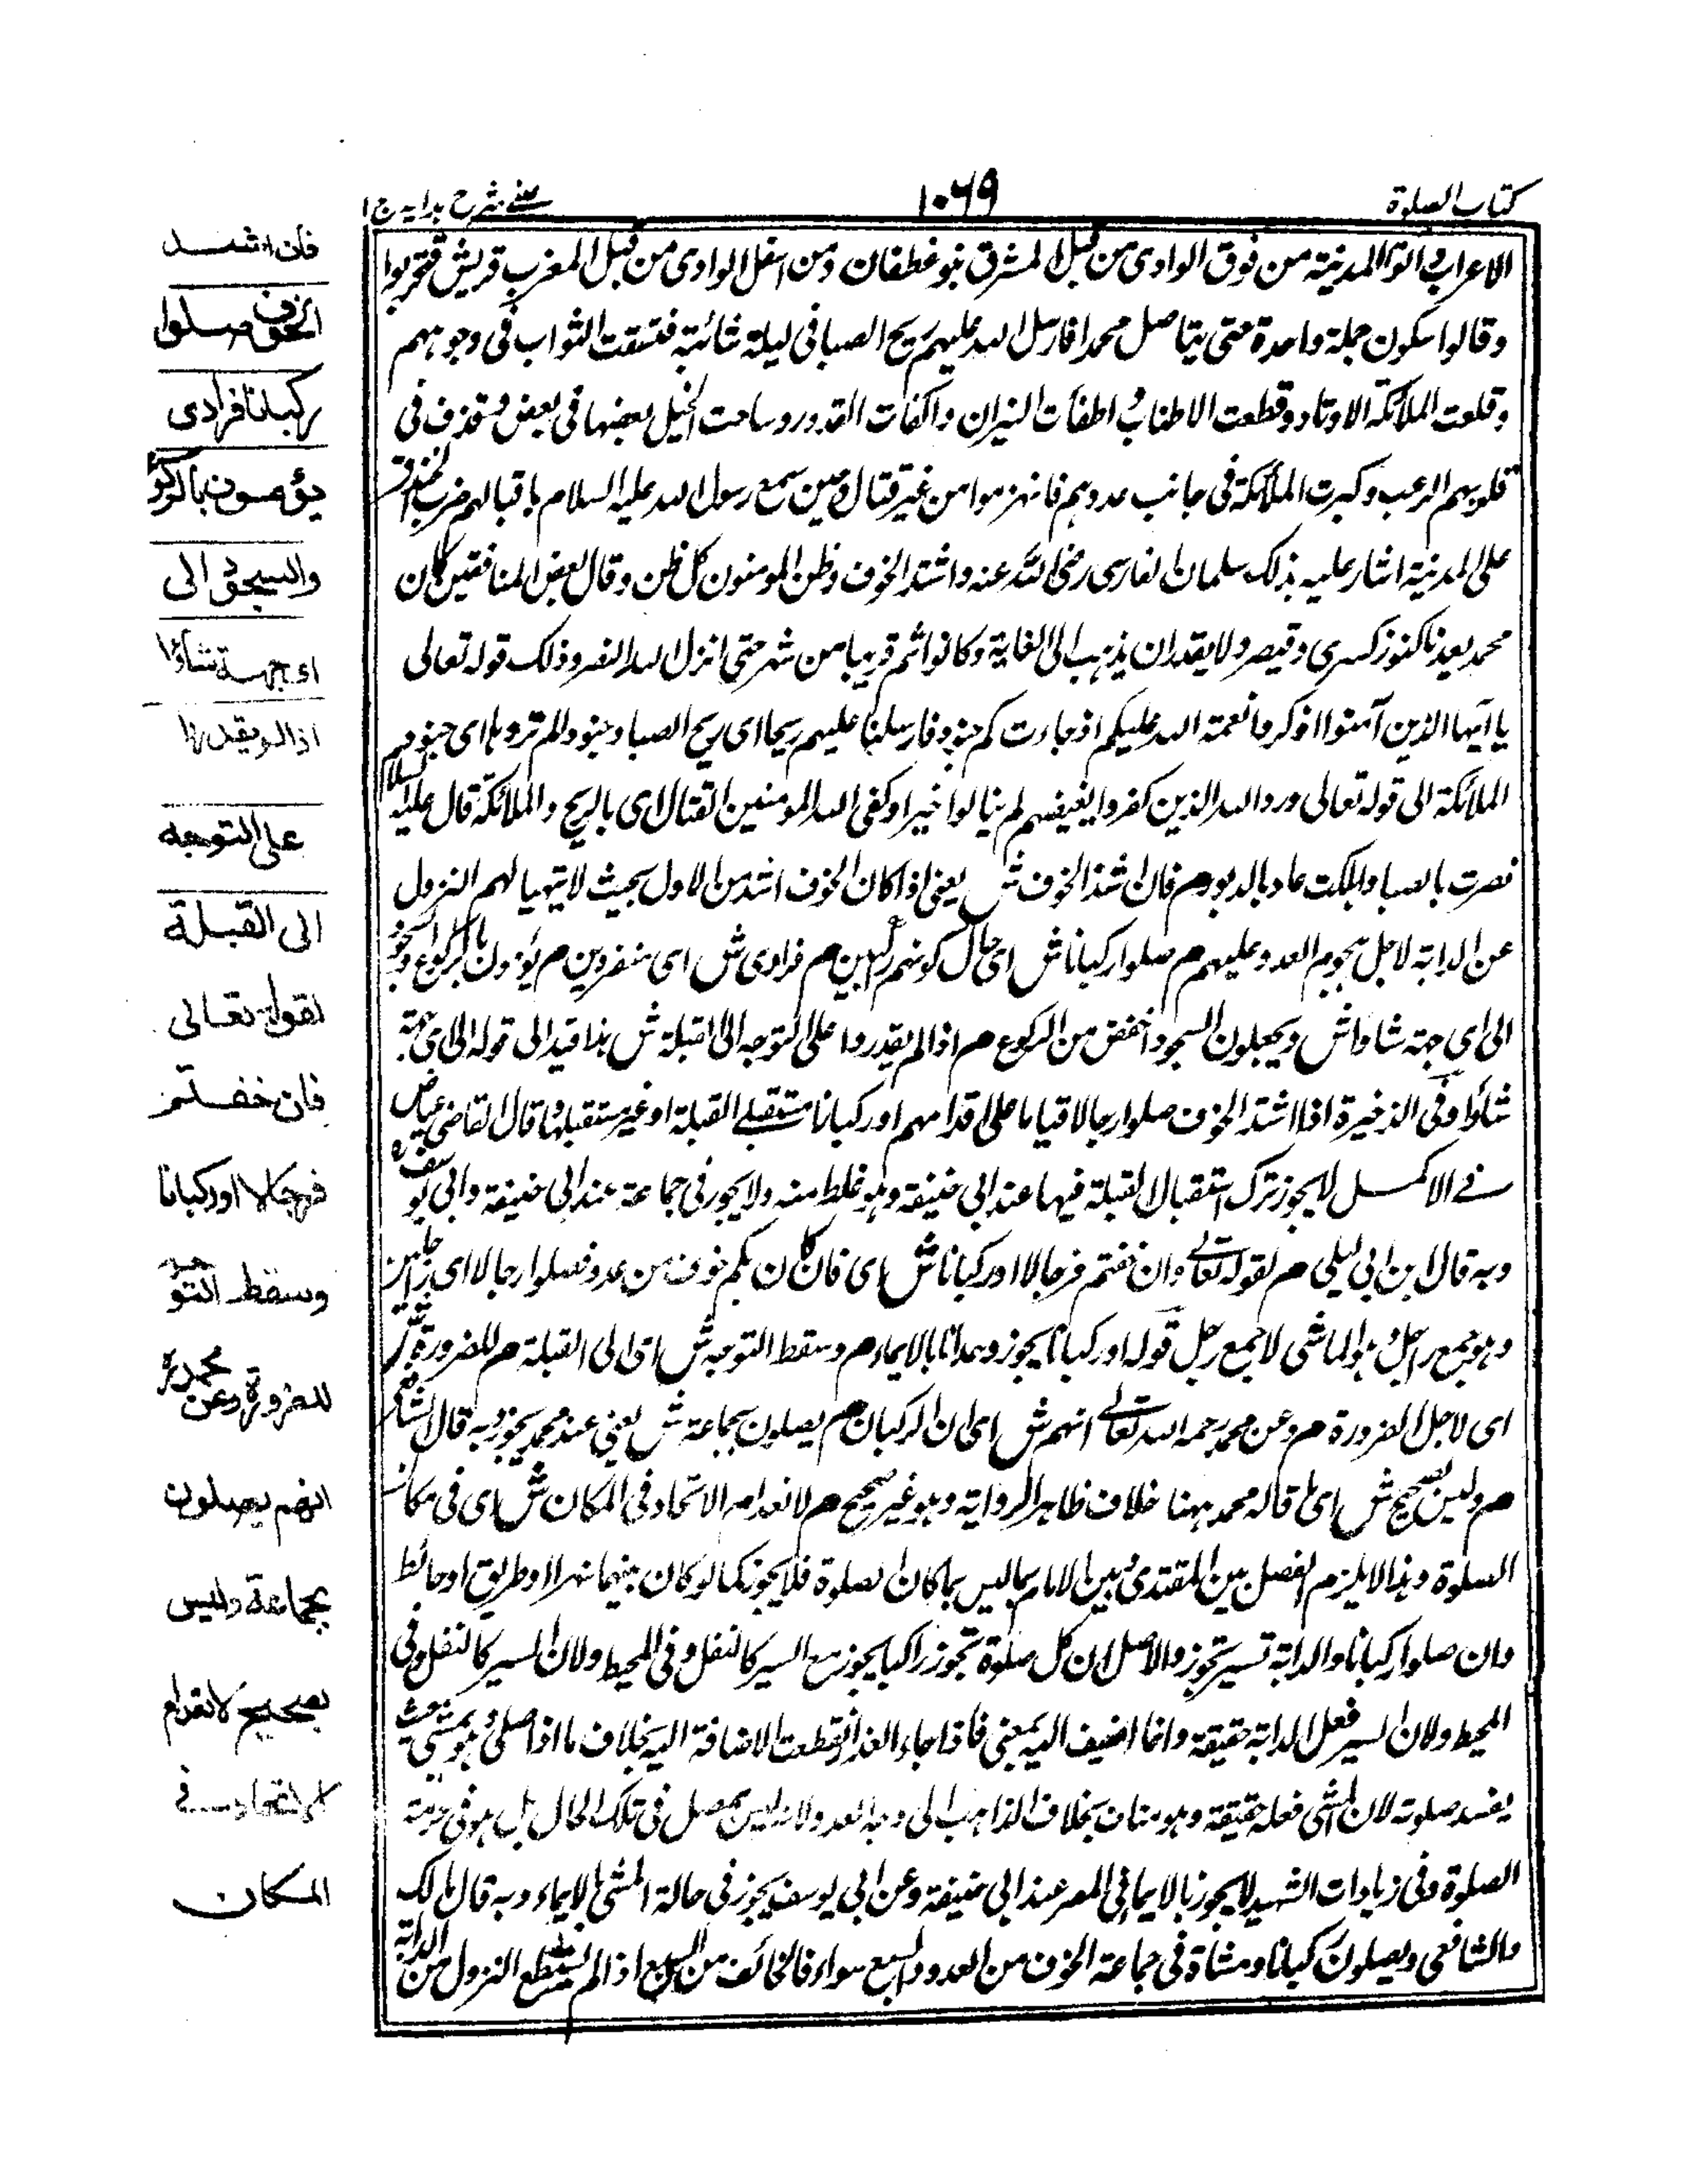 كتاب الصلوة
١٠٦٩
عينى شرح هدايه ج ١
الاعراب واتوا المدينة من فوق الوادى من قبل المشرق بنو غطفان ومن اسفل الوادى من قبل المغرب قريش فتحزبوا
وقالوا سكون جملة واحدة حتى يتاصل محمدا فارسل الله عليهم ريح الصبا فى ليلة شاتية فسقت التواب فى وجوههم
وقلعت الملائكة الاوتاد وقطعت الاطناب واطفأت النيران واكفأت القدور وساحت الخيل بعضها فى بعض وقذف فى
قلوبهم الرعب وكبرت الملائكة فى جانب عدوهم فانهزموا من غير قتال وحين سمع رسول الله عليه السلام باقبالهم ضرب الخندق
على المدينة اشار عليه بذلك سلمان الفارسى رضى الله عنه واشتد الخوف وظن المومنون كل ظن وقال بعض المنافقين كان
محمد يعدنا كنوز كسرى وقيصر ولا يقدر ان يذهب الى الغاية وكانوا ثم قريبا من شهر حتى انزل الله النصر وذلك قوله تعالى
يا ايها الذين آمنوا اذكروا نعمة الله عليكم اذ جاءت كم جنود فارسلنا عليهم ريحا اى ريح الصبا وجنودا لم تروها اى جنود هم
الملائكة الى قوله تعالى ورد الله الذين كفروا بغيظهم لم ينالوا خيرا وكفى الله المومنين القتال اى بالريح والملائكة قال عليه السلام
نصرت بالصبا واهلكت عاد بالدبور م فان اشتد الخوف ش يعنى اذا كان الخوف اشد من الاول بحيث لا يتهيا لهم النزول
عن الدابة لاجل هجوم العدو عليهم م صلوا ركبانا ش اى حال كونهم راكبين م فرادى ش اى منفردين م يؤمون بالركوع والسجود
الى اى جهة شاءوا ش ويجعلون السجود اخفض من الركوع م اذا لم يقدروا على التوجه الى القبلة ش هذا قيد الى قوله الى اى جهة
شاؤا وفى الذخيرة اذا اشتد الخوف صلوا رجالا قياما على اقدامهم او ركبانا مستقبلى القبلة او غير مستقبلها قال القاضى عياض
فى الاكمل لا يجوز ترك استقبال القبلة فيها عند ابى حنيفة وهو غلط منه ولا يجوز فى جماعة عند ابى حنيفة وابى يوسف
وبه قال ابن ابى ليلى م لقوله تعالى وان خفتم فرجالا او ركبانا ش اى فان كان بكم خوف من عدو فصلوا رجالا اى راجلين
وهو جمع راجل وهو الماشى لا جمع رجل قوله او ركبانا يجوز وحدانا بالايماء م وسقط التوجه ش اى الى القبلة م للضرورة ش
اى لاجل الضرورة م وعن محمد رحمه الله تعالى انهم ش اى ان الركبان م يصلون بجماعة ش يعنى عند محمد يجوز وبه قال الشافعى
م وليس بصحيح ش اى ما قاله محمد ههنا خلاف ظاهر الرواية وهو غير صحيح م لانعدام الاتحاد فى المكان ش اى فى مكان
الصلوة وهذا لا يلزم الفصل بين المقتدى وبين الامام بما ليس بمكان الصلوة فلا يجوز كما لو كان بينهما نهرا او طريق او حائط
وان صلوا ركبانا والدابة تسير تجوز والاصل ان كل صلوة تجوز راكبا يجوز مع السير كالنفل وفى المحيط ولان السير كالنفل وفى
المحيط ولان السير فعل الدابة حقيقة وانما اضيف اليه بمعنى فاذا جاء العذر انقطعت الاضافة اليه بخلاف ما اذا صلى وهو يمشى حيث
يفسد صلوته لان المشى فعله حقيقة وهو مناف بخلاف الذاهب الى وجه العدو ولانه ليس بمصل فى تلك الحال بل هو فى حرمة
الصلوة وفى زيادات الشهيد لا يجوز بالايماء فى المصر عند ابى حنيفة وعن ابى يوسف يجوز فى حالة المشى بالايماء وبه قال مالك
والشافعى ويصلون ركبانا ومشاة فى جماعة الخوف من العدو والسبع سواء فالخائف من السبع اذا لم يستطع النزول من الدابة
فان اشتد
الخوف صلوا
ركبانا فرادى
يؤمون بالركوع
والسجود الى
اى جهة شاؤا
اذا لم يقدروا
على التوجه
الى القبلة
لقوله تعالى
فان خفتم
فرجالا او ركبانا
وسقط التوجه
للضرورة وعن محمد
انهم يصلون
بجماعة وليس
بصحيح لانعدام
الاتحاد فى
المكان